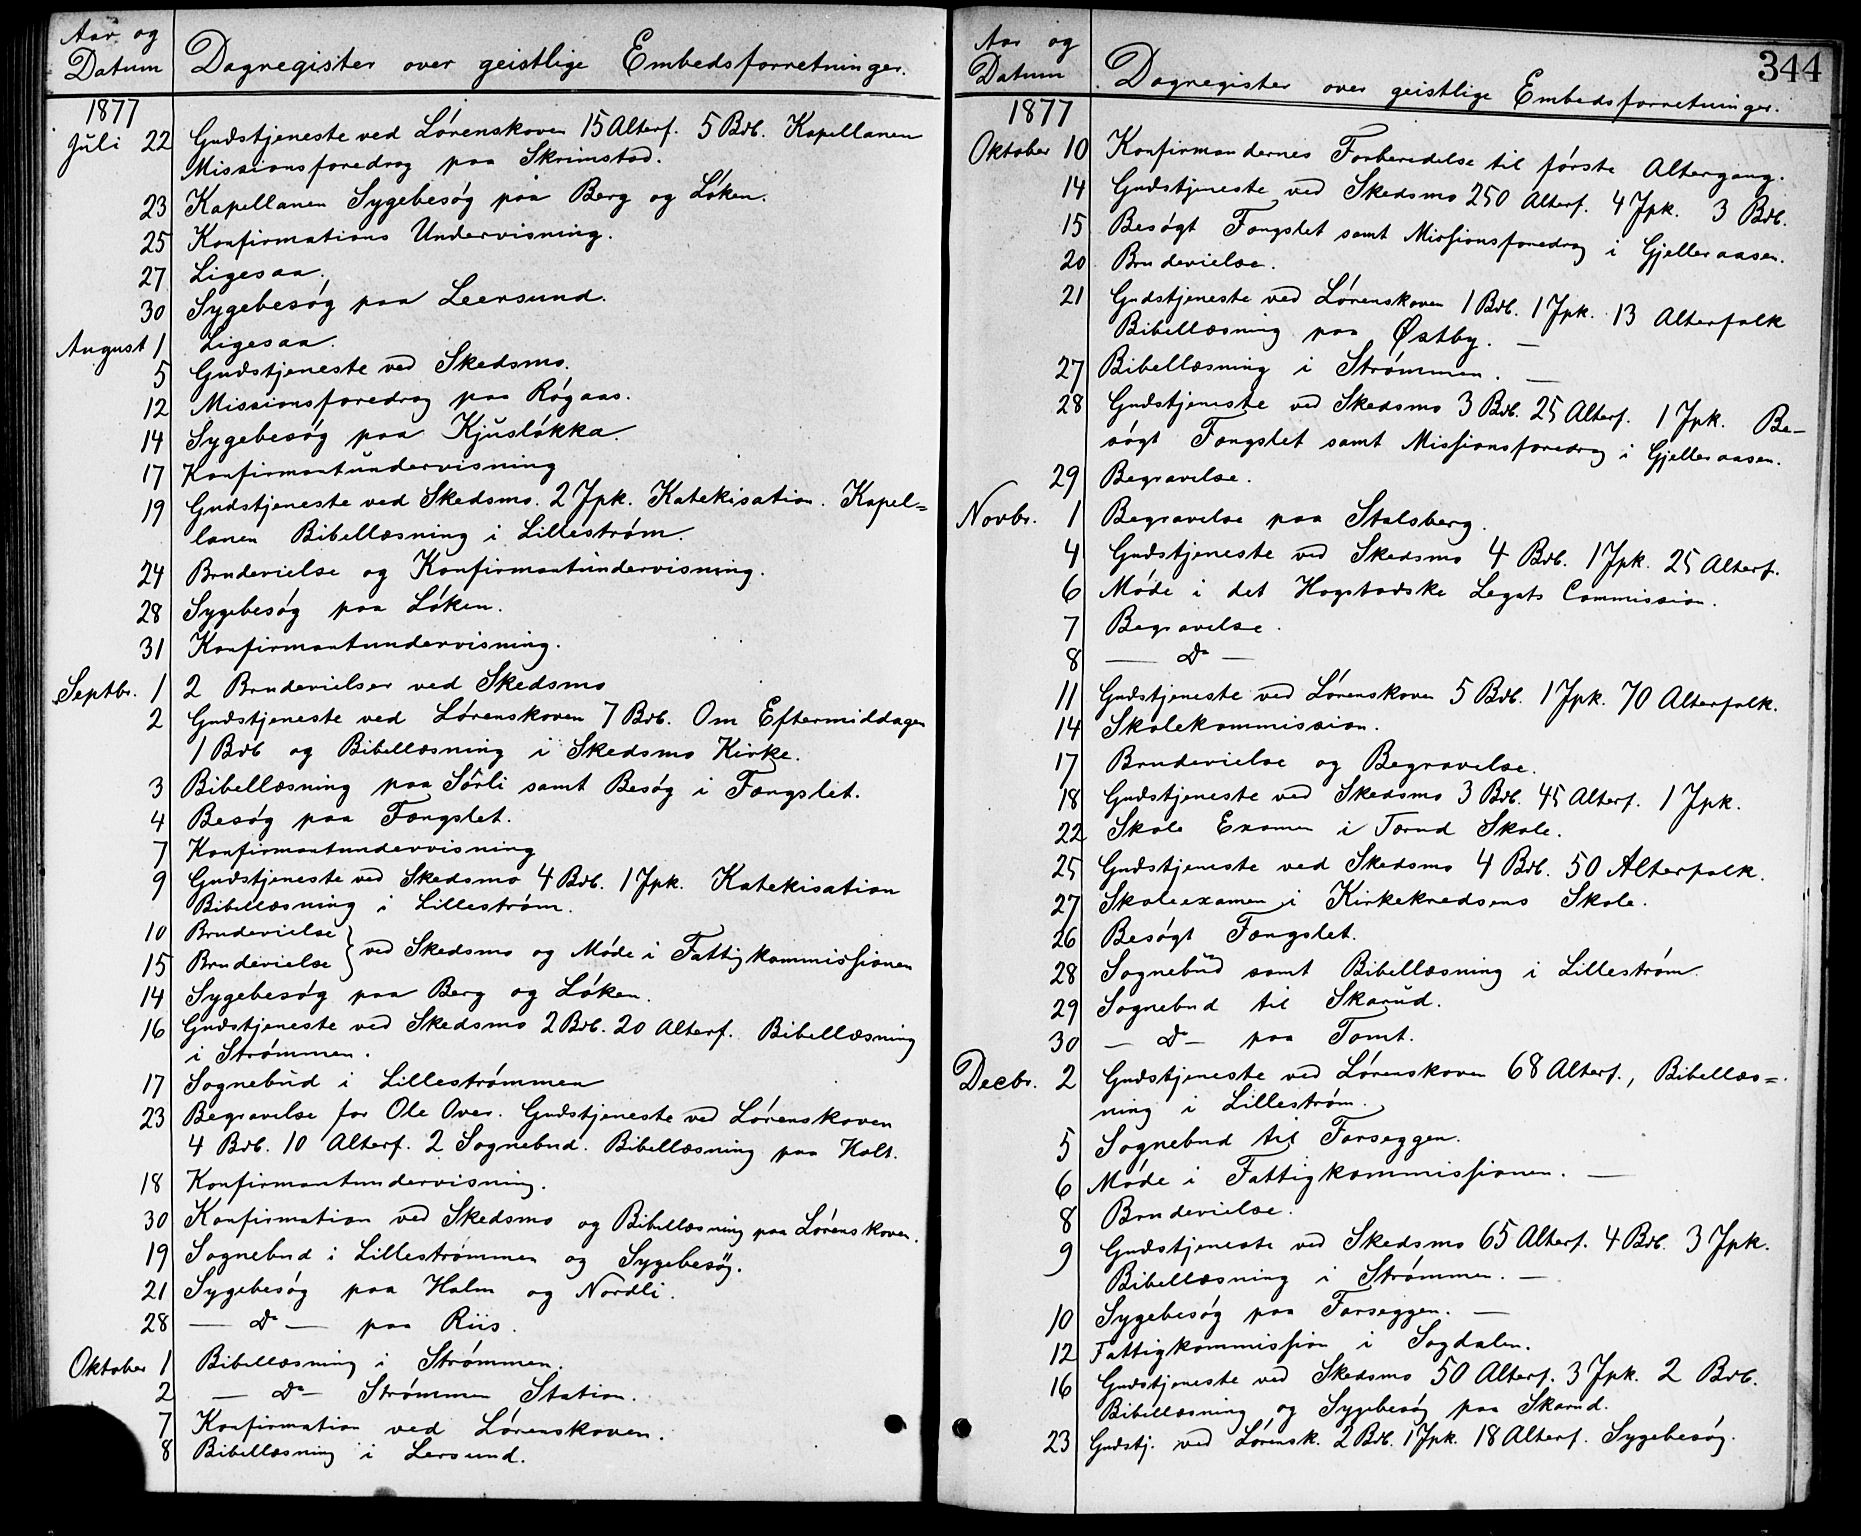 Aar og
Datum
Dagregister over geistlige Embedsforretninger.
1877
Juli 22 Gudstjeneste ved Lørenskoven 15 Alterf. 5 Brb. Kapellanen
Missionsforedrag paa Skrimstad.
23 Kapellanen Sygebesøg paa Berg og Løken.
25 Konfirmations Undervisning.
27 Ligesaa.
30 Sygebesøg paa Leersund.
August 1 Ligesaa.
5 Gudstjeneste ved Skedsmo.
12 Missionsforedrag paa Røgaas.
14 Sygebesøg paa Kjusløkka.
17 Konfirmantundervisning
19 Gudstjeneste ved Skedsmo. 2 Jpk. Katekisation. Kapel=
lanen Bibellæsning i Lillestrøm.
24 Brudevielse og Konfirmantundervisning.
28 Sygebesøg paa Løken.
31 Konfirmantundervisning.
Septbr. 1 2 Brudevielser ved Skedsmo
2 Gudstjeneste ved Lørenskoven 7 Brb. Om Eftermiddagen
1 Brb og Bibellæsning i Skedsmo Kirke.
3 Bibellæsning paa Sørli samt Besøg i Fængslet.
4 Besøg paa Fængslet.
7 Konfirmantundervisning
9 Gudstjeneste ved Skedsmo 4 Brb. 1 Jpk. Katekisation
Bibellæsning i Lillestrøm.
10 Brudevielse
15 Brudevielse } ved Skedsmo og Møde i Fattigkommissionen
14 Sygebesøg paa Berg og Løken.
16 Gudstjeneste ved Skedsmo 2 Brb. 20 Alterf. Bibellæsning
i Strømmen.
17 Sognebud i Lillestrømmen
23 Begravelse for Ole Over. Gudstjeneste ved Lørenskoven
4 Brb. 10 Alterf. 2 Sognebud. Bibellæsning paa Holt.
18 Konfirmantundervisning.
30 Konfirmation ved Skedsmo og Bibellæsning paa Lørenskoven.
19 Sognebud i Lillestrømmen og Sygebesøg.
21 Sygebesøg paa Halm og Nordli.
28 — do — paa Riis.
Oktober 1 Bibellæsning i Strømmen.
2 — do — Strømmen Station.
7 Konfirmation ved Lørenskoven.
8 Bibellæsning i Lersund.
344
Aar og
Datum
Dagregister over geistlige Embedsforretninger.
1877
Oktober 10 Konfirmandernes Forberedelse til første Altergang.
14 Gudstjeneste ved Skedsmo 250 Alterf. 4 Jpk. 3 Brb.
15 Besøgt Fængslet samt Missionsforedrag i Gjelleraasen.
20 Brudevielse.
21 Gudstjeneste ved Lørenskoven 1 Brb. 1 Jpk. 13 Alterfolk
Bibellæsning paa Østby. —
27 Bibellæsning i Strømmen. —
28 Gudstjeneste ved Skedsmo 3 Brb. 25 Alterf. 1 Jpk. Be-
søgt Fængslet samt Missionsforedrag i Gjelleraasen.
29 Begravelse.
Novbr. 1 Begravelse paa Stalsberg.
4 Gudstjeneste ved Skedsmo 4 Brb. 1 Jpk. 25 Alterf.
6 Møde i det Hogstadske Legats Commission.
7 Begravelse.
8 — do —
11 Gudstjeneste ved Lørenskoven 5 Brb. 1 Jpk. 70 Alterfolk.
14 Skolekommission.
17 Brudevielse og Begravelse.
18 Gudstjeneste ved Skedsmo 3 Brb. 45 Alterf. 1 Jpk.
22 Skole Examen i Tærud Skole.
25 Gudstjeneste ved Skedsmo 4 Brb. 50 Alterfolk.
27 Skoleexamen i Kirkekredsens Skole.
26 Besøgt Fængslet.
28 Sognebud samt Bibellæsning i Lillestrøm.
29 Sognebud til Skarud.
30 — do — paa Tomt.
Decbr. 2 Gudstjeneste ved Lørenskoven 68 Alterf., Bibellæs=
ning i Lillestrøm.
5 Sognebud til Farseggen.
6 Møde i Fattigkommissionen. —
8 Brudevielse.
9 Gudstjeneste ved Skedsmo 65 Alterf. 4 Brb. 3 Jpk.
Bibellæsning i Strømmen. —
10 Sygebesøg paa Farseggen. —
12 Fattigkommission i Sogdalen.
16 Gudstjeneste ved Skedsmo 50 Alterf. 3 Jpk. 2 Brb.
Bibellæsning og Sygebesøg paa Skarud.
23 Gudstj. ved Lørensk. 2 Brb. 1 Jpk. 18 Alterf. Sygebesøg.